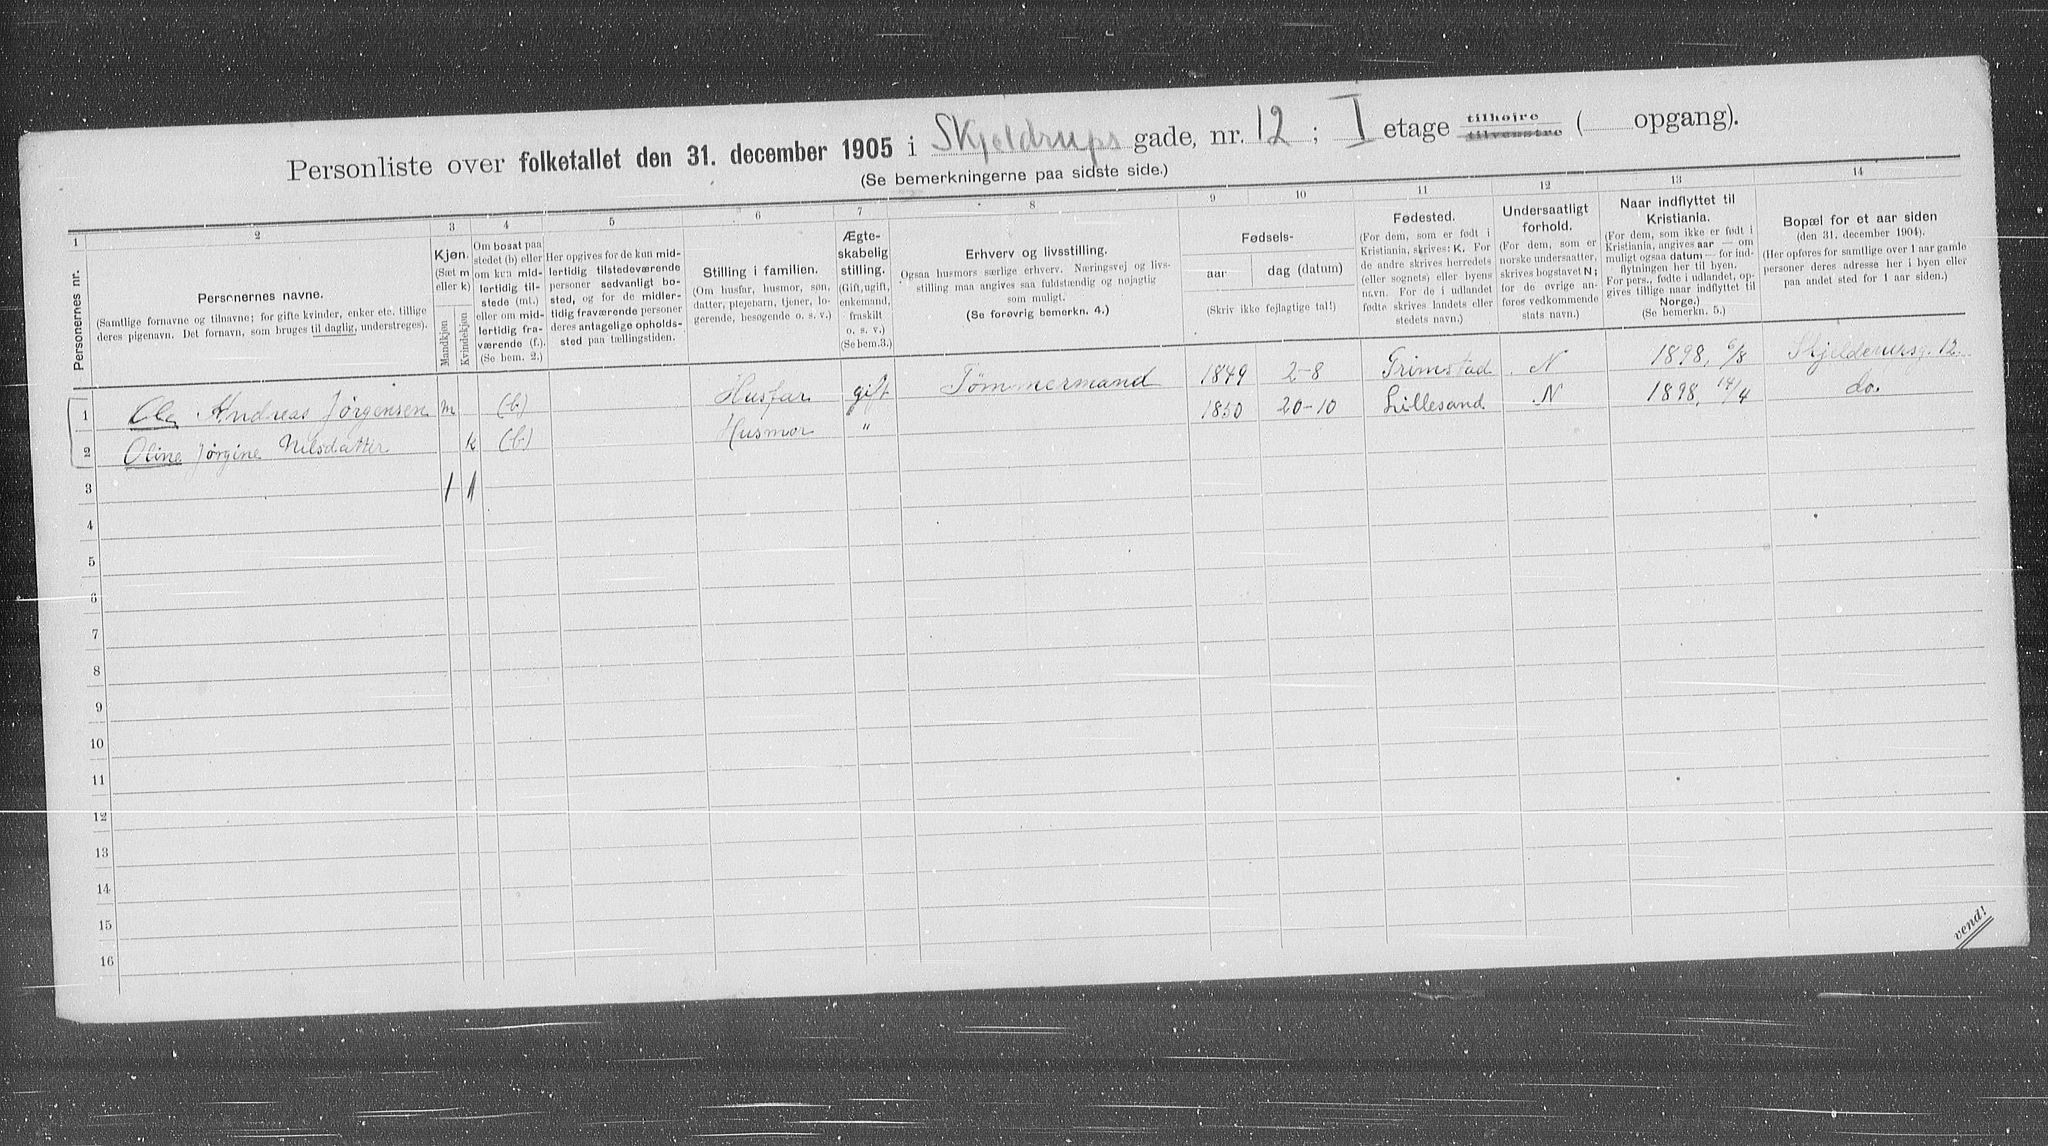 Personliste over folketallet den 31. december 1905 i Skjeldrups gade, nr. 12 ; I etage tilhøjre tilvenstre ( opgang).
(Se bemerkningerne paa sidste side.)
1 2 3 4 5 6 7 8 9 10 11 12 13 14
Personernes nr.
Personernes navne.
(Samtlige fornavne og tilnavne; for gifte kvinder, enker etc. tillige
deres pigenavn. Det fornavn, som bruges til daglig, understreges).
Kjøn.
(Sæt m
eller k)
Mandkjøn
Kvindekjøn
Om bosat paa
stedet (b) eller
om kun mid-
lertidig til-
stede (mt.)
eller om mid-
lertidig fra-
værende (f.).
(Se bem. 2.)
Her opgives for de kun mid-
lertidig tilstedeværende
personer sedvanligt bo-
sted, og for de midler-
tidig fraværende personer
deres antagelige opholds-
sted paa tællingstiden.
Stilling i familien.
(Om husfar, husmor, søn,
datter, plejebarn, tjener, lo-
gerende, besøgende o. s. v.)
Ægte-
skabelig
stilling.
(Gift, ugift,
enkemand,
fraskilt
o. s. v.)
(Se bem.3.)
Erhverv og livsstilling.
Ogsaa husmors særlige erhverv. Næringsvej og livs-
stilling maa angives saa fuldstændig og nøjagtig
som muligt.
(Se forøvrig bemerkn. 4.)
Fødsels-
aar dag (datum)
(Skriv ikke fejlagtige tal!)
Fødested.
(For dem, som er født i
Kristiania, skrives: K. For
de andre skrives herredets
(eller sognets) eller byens
navn. For de i udlandet
fødte skrives landets eller
stedets navn.)
Undersaatligt
forhold.
(For dem, som er
norske undersaatter,
skrives bogstavet N;
for de øvrige an-
føres vedkommende
stats navn.)
Naar indflyttet til
Kristiania.
(For dem, som ikke er født i
Kristiania, angives aar — om
muligt ogsaa datum — for ind-
flytningen her til byen.
For pers., fødte i udlandet, op-
gives tillige naar indflyttet til
Norge.)
(Se bemerkn. 5.)
Bopæl for et aar siden
(den 31. december 1904).
(Her opføres for samtlige over 1 aar gamle
personer deres adresse her i byen eller
paa andet sted for 1 aar siden.)
1 Ole Andreas Jørgensen m (b) Husfar gift Tømmermand 1849 2-8 Grimstad N 1898, 6/8 Skjelderupsg. 12.
2 Oline Jørgine Nilsdatter k (b) Husmor " 1850 20-10 Lillesand N 1898, 14/4 do.
3 1 1
4
5
6
7
8
9
10
11
12
13
14
15
16
vend!